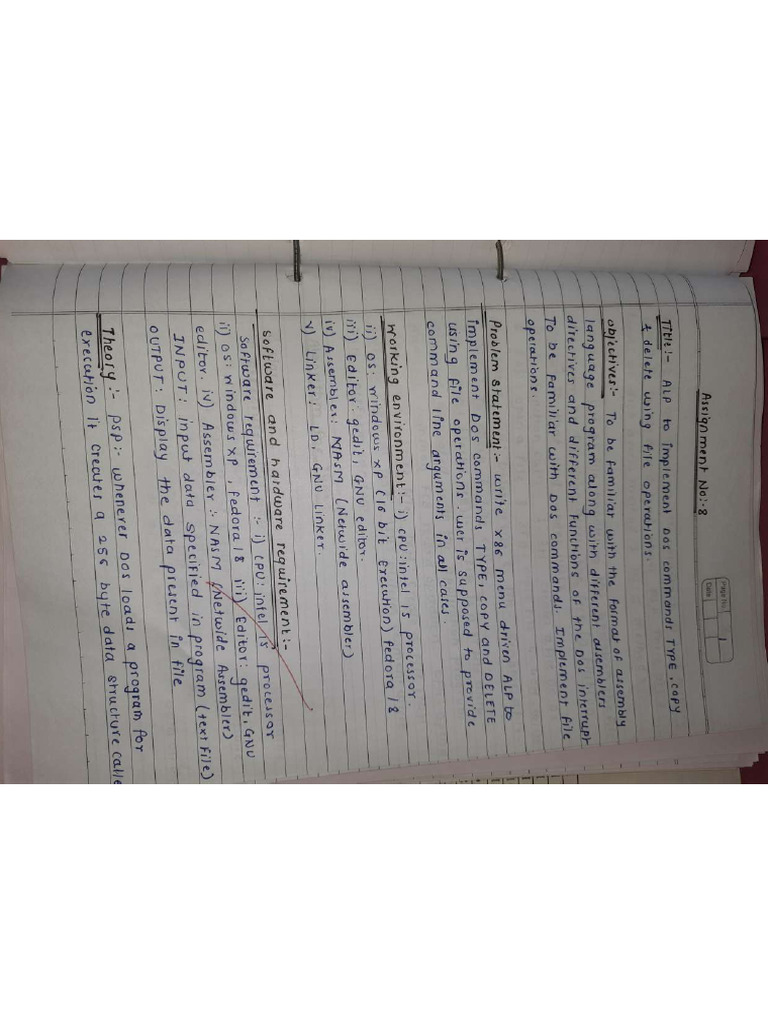 Page No. 1
Date
Assignment No:-8
Title:- ALP to implement DOS commands TYPE, copy
& delete using file operations.
objectives:- To be familiar with the format of assembly
language program along with different assemblers
directives and different functions of the DOS interrupt
To be familiar with DOS commands. Implement file
operations.
Problem statement:- write x86 menu driven ALP to
implement DOS commands TYPE, COPY and DELETE
using file operations. user is supposed to provide
command line arguments in all cases.
working environment:- i) CPU: intel I5 processor.
ii) OS: windows XP (16 bit Execution) fedora 18
iii) Editor: gedit, GNU editor.
iv) Assembler: NASM (Netwide assembler)
v) Linker: LD, GNU Linker.
software and hardware requirement:-
Software requirement :- i) CPU: intel I5 processor
ii) OS: windows XP, fedora 18 iii) Editor: gedit, GNU
editor. iv) Assembler :- NASM (Netwide Assembler)
INPUT: input data specified in program (text file)
OUTPUT: Display the data present in file
Theory:- PSP:- whenever DOS loads a program for
execution it creates a 256 byte data structure calle